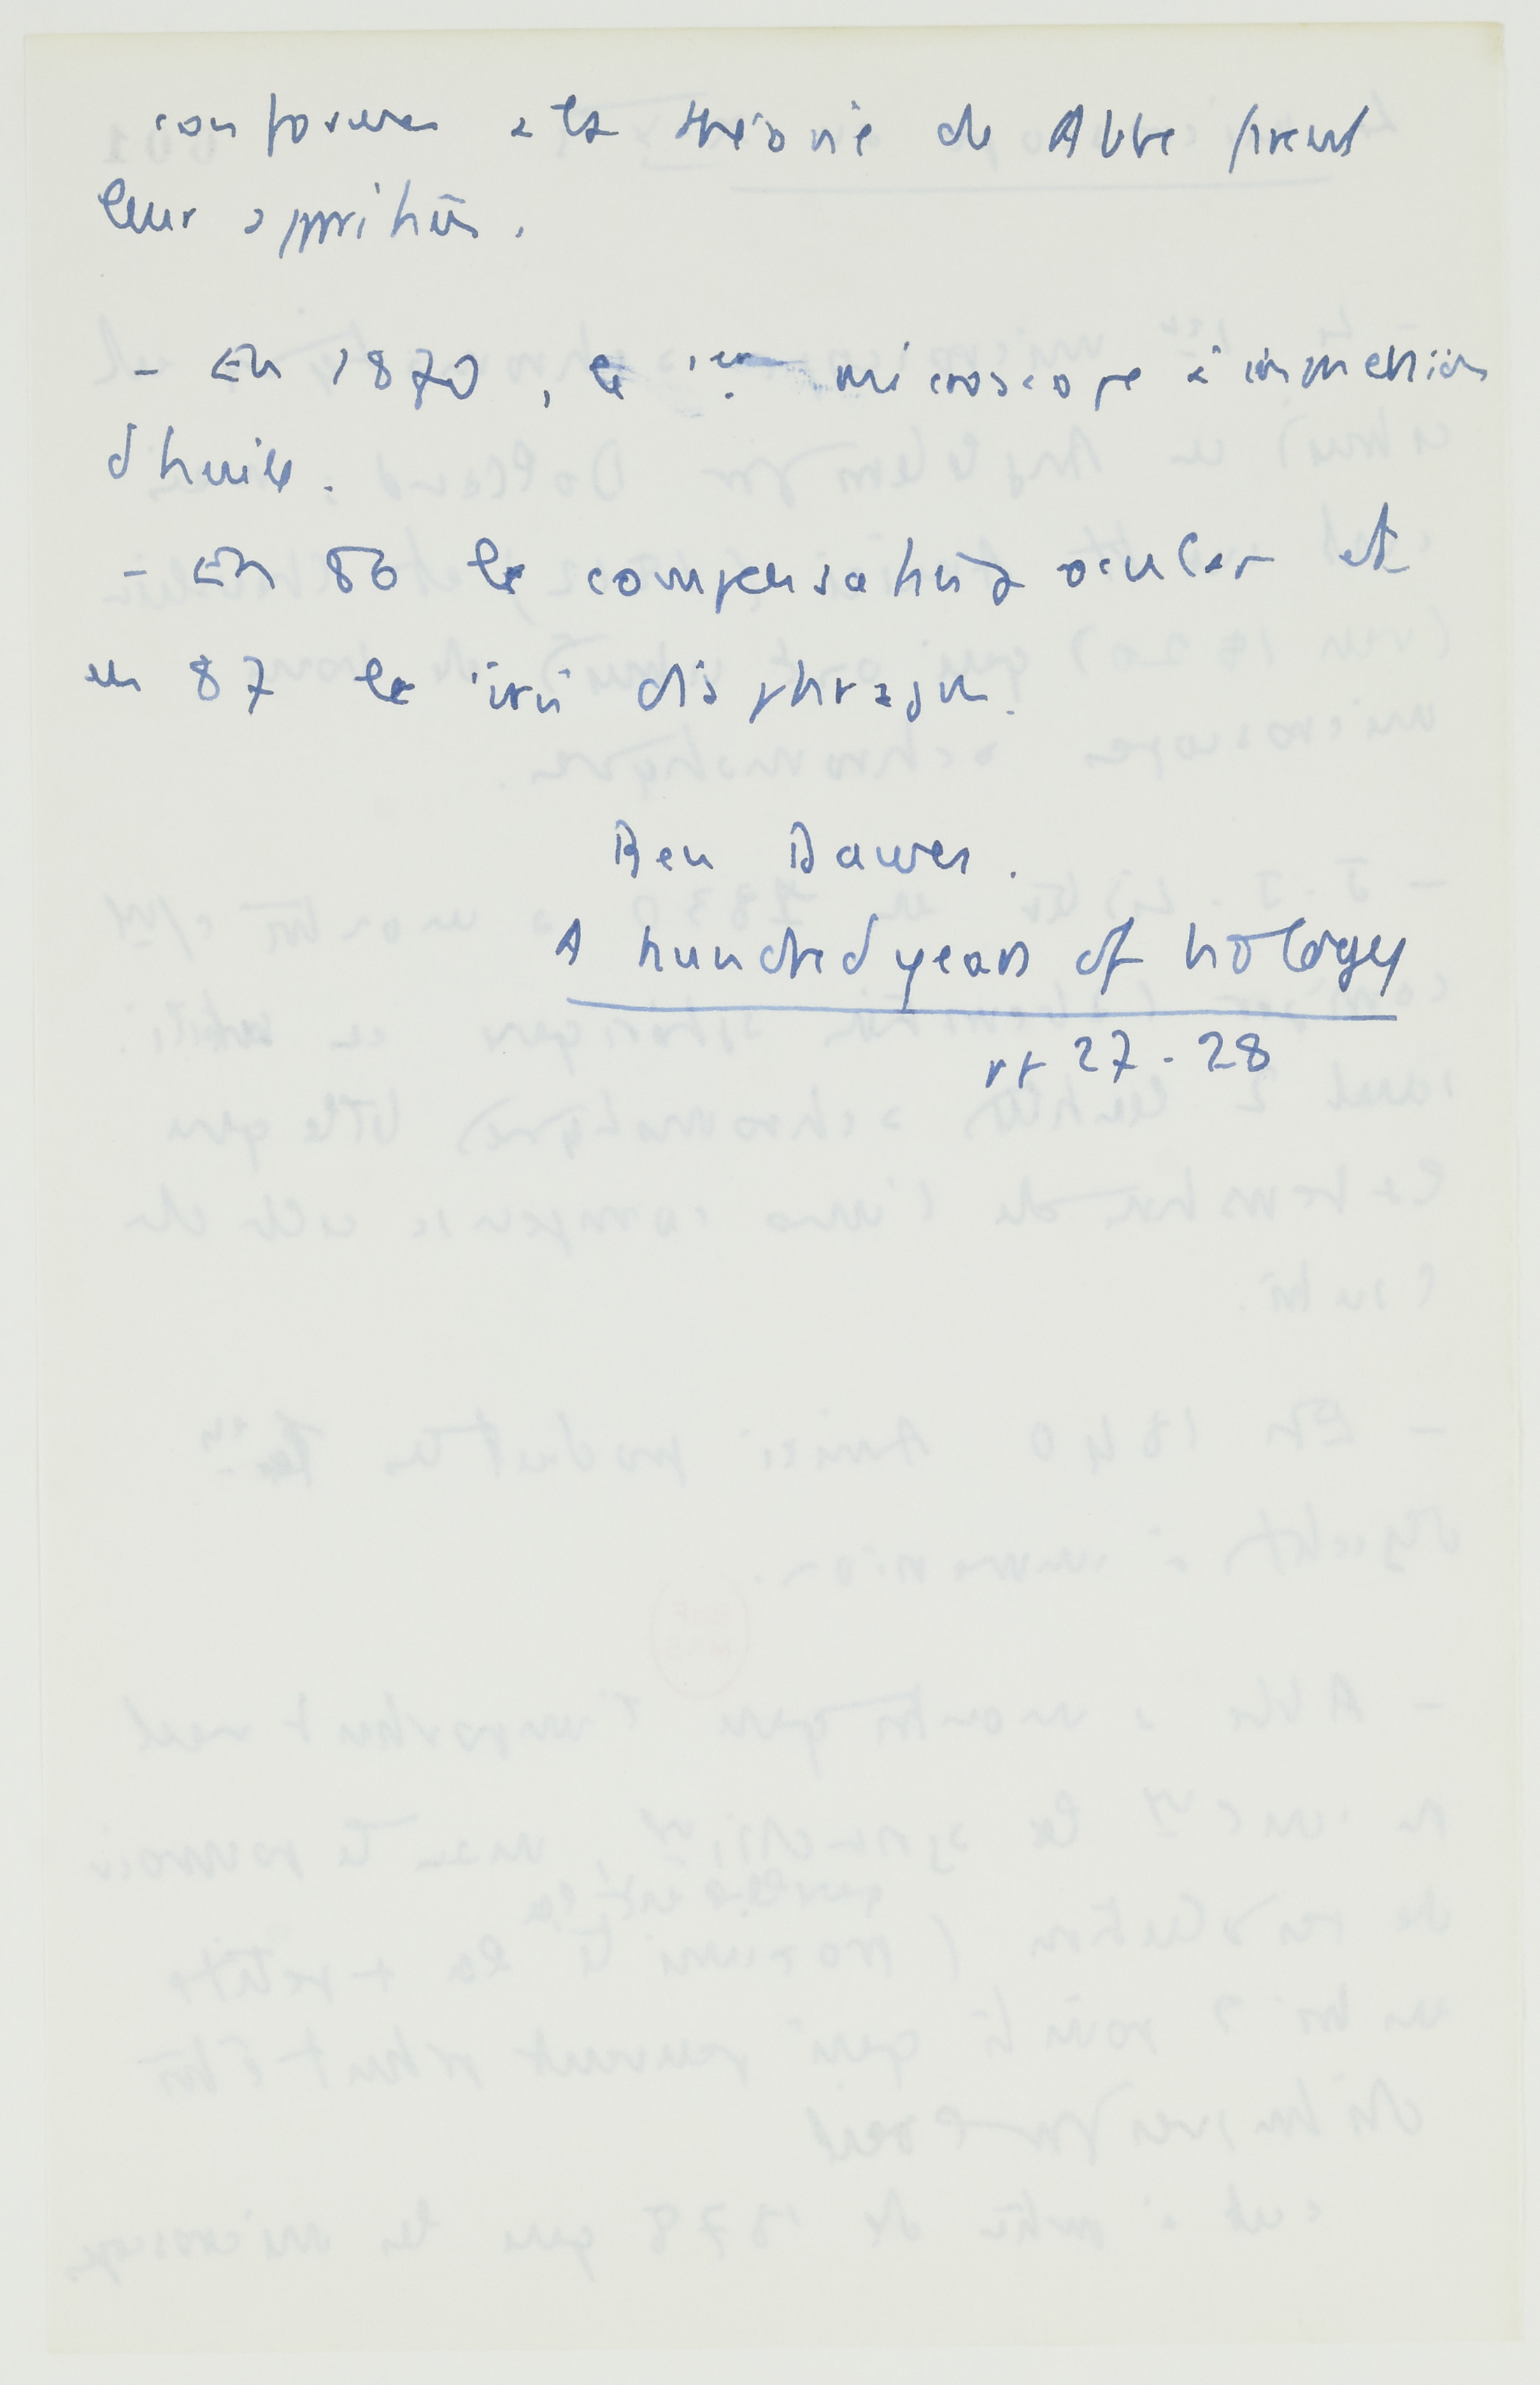 conformes à la théorie de Abbe firent
leur apparition.
- En 1870, le 1er microscope à immersion
d'huile.
- En 86 le compensating ocular et
en 87 le iris diaphragm.
Ben Dawes.
A hundred years of biology
pp 27-28